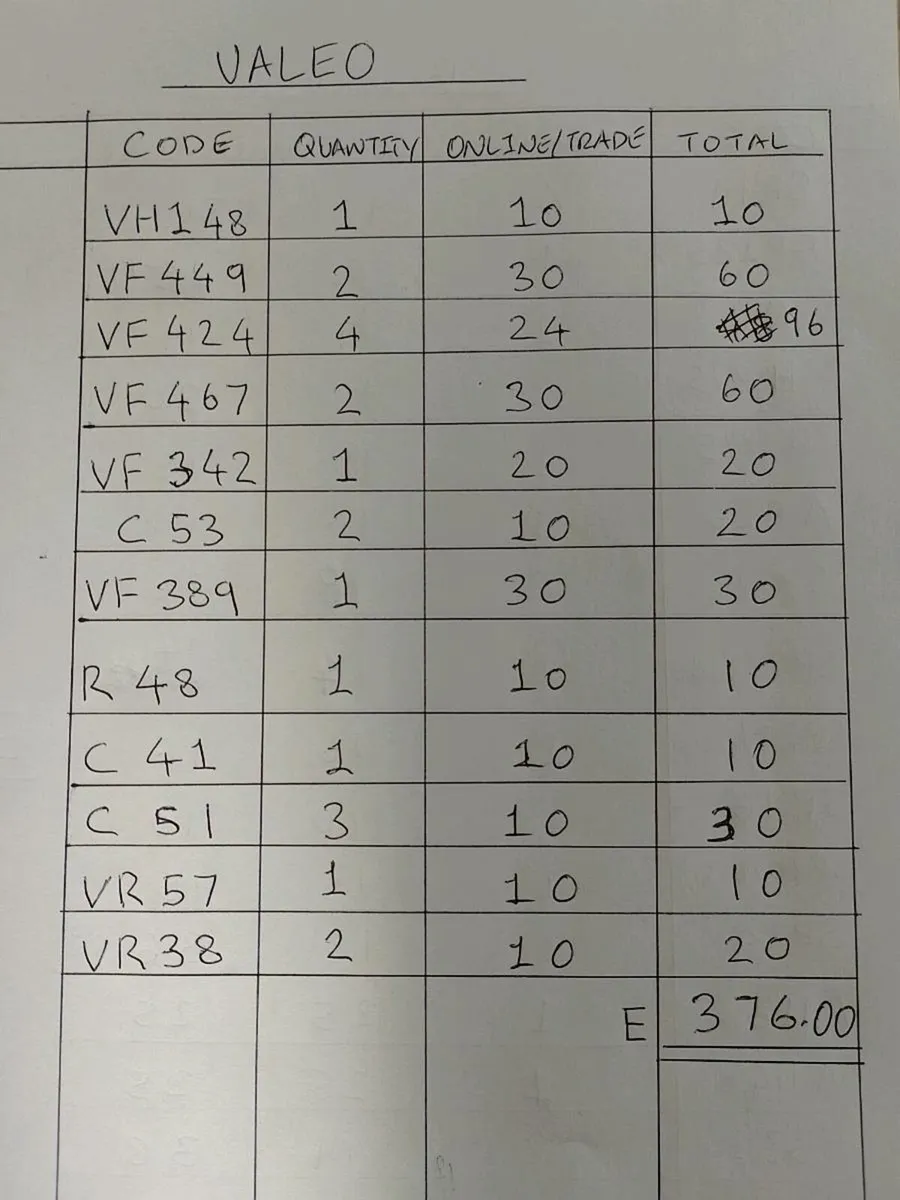 VALEO
CODE QUANTITY ONLINE/TRADE TOTAL
VH148 1 10 10
VF 449 2 30 60
VF 424 4 24 96
VF 467 2 30 60
VF 342 1 20 20
C 53 2 10 20
VF 389 1 30 30
R 48 1 10 10
C 41 1 10 10
C 51 3 10 30
VR 57 1 10 10
VR 38 2 10 20
E 376.00